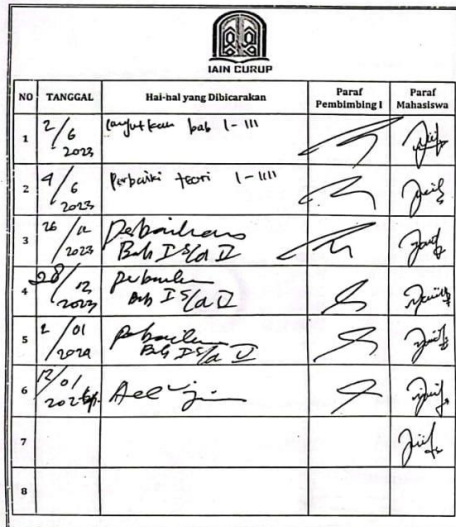 IAIN CURUP
NO TANGGAL Hal-hal yang Dibicarakan Paraf Pembimbing I Paraf Mahasiswa
1 2/6 2023 lanjutkan bab I-III
2 9/6 2023 Perbaiki teori I-III
3 26/12 2023 Perbaikan Bab I S/d V
4 28/12 2023 Bab I S/d V
5 2/01 2024 Bab I S/d V
6 12/01 Acc
7
8